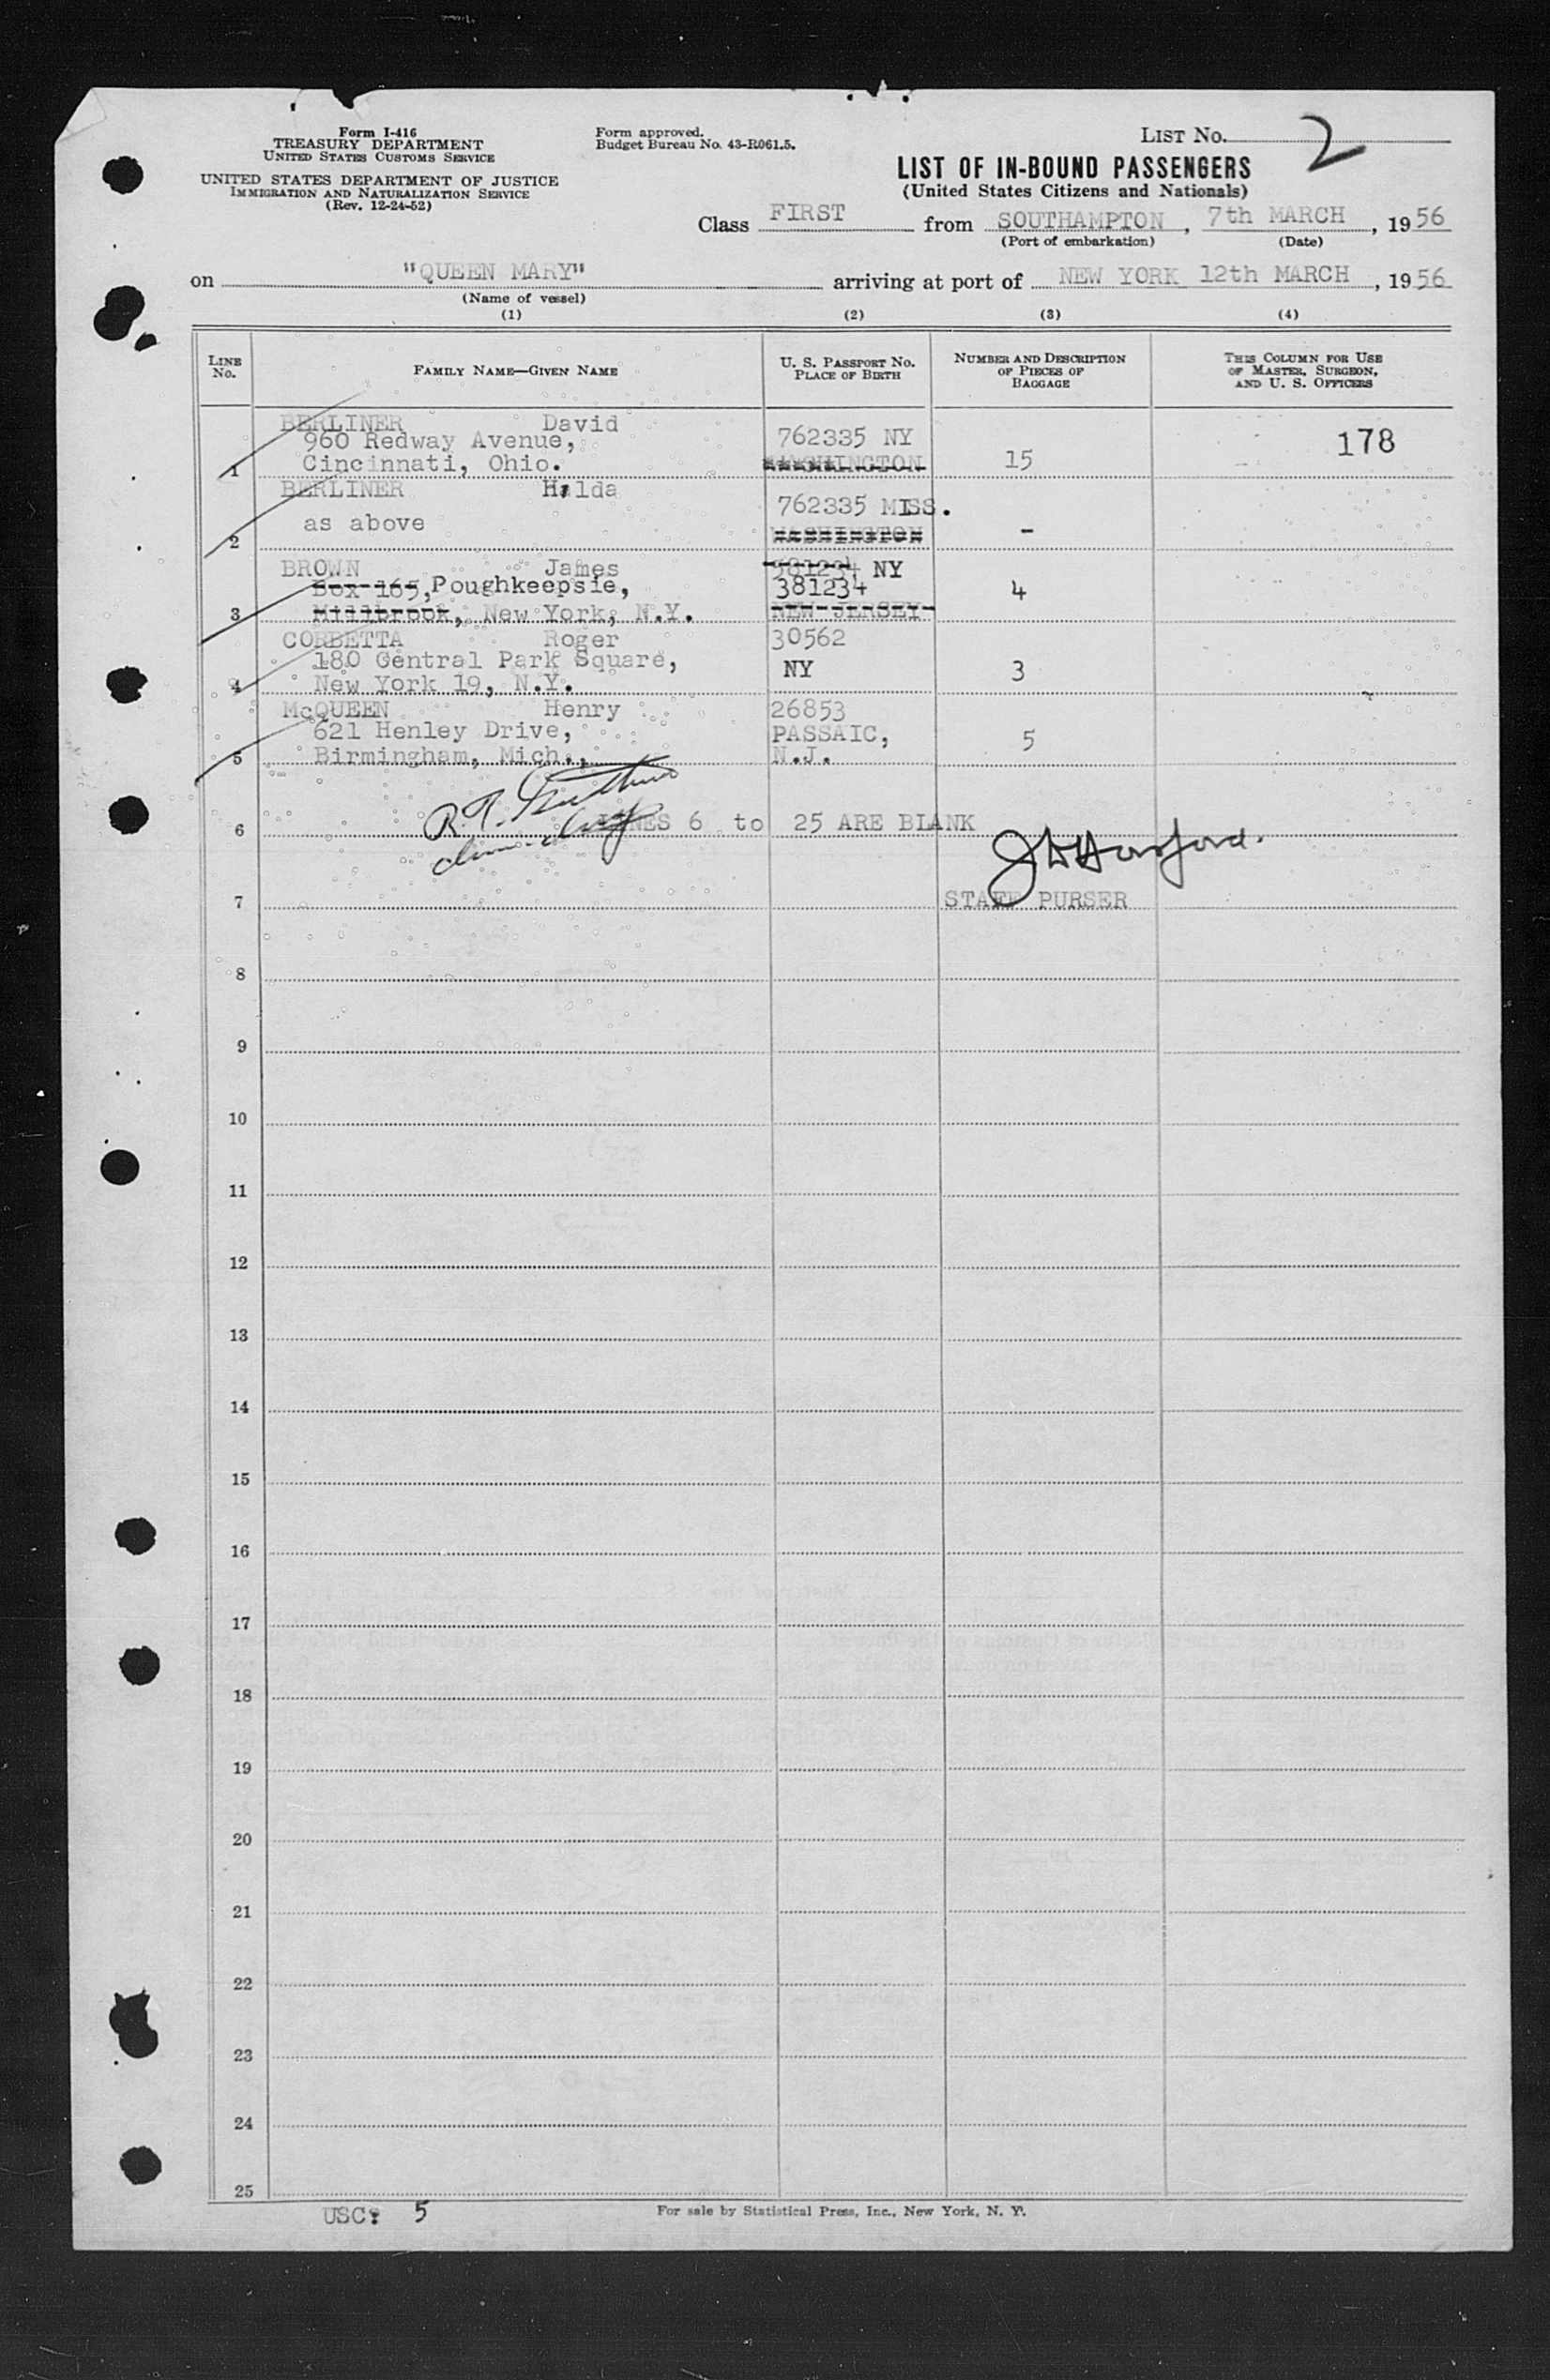 Form I-416
TREASURY DEPARTMENT
UNITED STATES CUSTOMS SERVICE
UNITED STATES DEPARTMENT OF JUSTICE
IMMIGRATION AND NATURALIZATION SERVICE
(Rev. 12-24-52)
Form approved.
Budget Bureau No. 43-R061.5.
LIST NO. 2
LIST OF IN-BOUND PASSENGERS
(United States Citizens and Nationals)
Class FIRST from SOUTHAMPTON, 7th MARCH, 1956
(Port of embarkation) (Date)
on "QUEEN MARY" arriving at port of NEW YORK 12th MARCH, 1956
(Name of vessel)
(1) (2) (3) (4)
LINE NO.
FAMILY NAME—GIVEN NAME
U. S. PASSPORT NO.
PLACE OF BIRTH
NUMBER AND DESCRIPTION
OF PIECES OF
BAGGAGE
THIS COLUMN FOR USE
OF MASTER, SURGEON,
AND U. S. OFFICERS
BERLINER David
960 Redway Avenue, 762335 NY 178
1 Cincinnati, Ohio. WASHINGTON 15
BERLINER Hilda
762335 MISS.
as above
2 WASHINGTON -
BROWN James 381234 NY
Box 165, Poughkeepsie, 381234 4
3 Millbrook, New York, N.Y. NEW JERSEY
CORBETTA Roger 30562
180 Central Park Square, NY 3
4 New York 19, N.Y.
McQUEEN Henry 26853
621 Henley Drive, PASSAIC, 5
5 Birmingham, Mich., N.J.
R.T.
6 LINES 6 to 25 ARE BLANK
7 STAFF PURSER
8
9
10
11
12
13
14
15
16
17
18
19
20
21
22
23
24
25
USC: 5
For sale by Statistical Press, Inc., New York, N. Y.